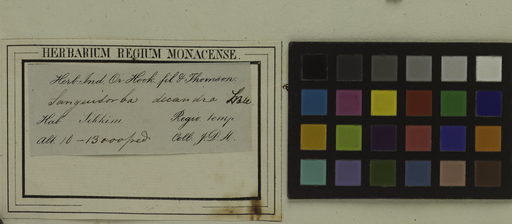 HERBARIUM REGIUM MONACENSE.
Herb. Ind. Or. Hook. fil. & Thomson.
Sanguisorba decandra
Hab. Sikkim Regio temp.
Alt. 10-13000 ped. Coll. J.D.H.